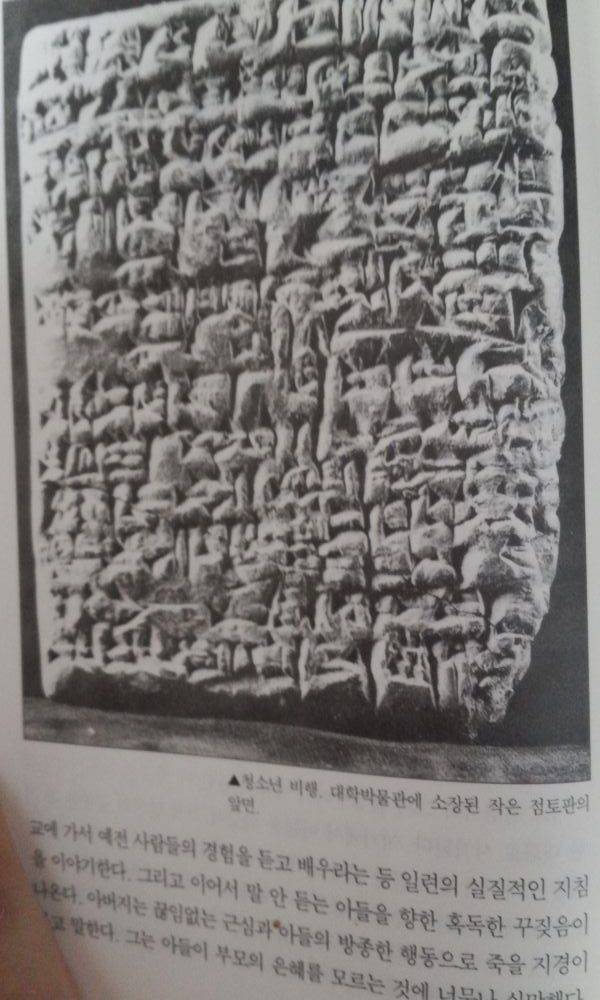 ▲청소년 비행. 대학박물관에 소장된 작은 점토판의
앞면.
교에 가서 예전 사람들의 경험을 듣고 배우라는 등 일련의 실질적인 지침
을 이야기한다. 그리고 이어서 말 안 듣는 아들을 향한 혹독한 꾸짖음이
나온다. 아버지는 끊임없는 근심과 아들의 방종한 행동으로 죽을 지경이
말한다. 그는 아들이 부모의 은혜를 모르는 것에 너무나